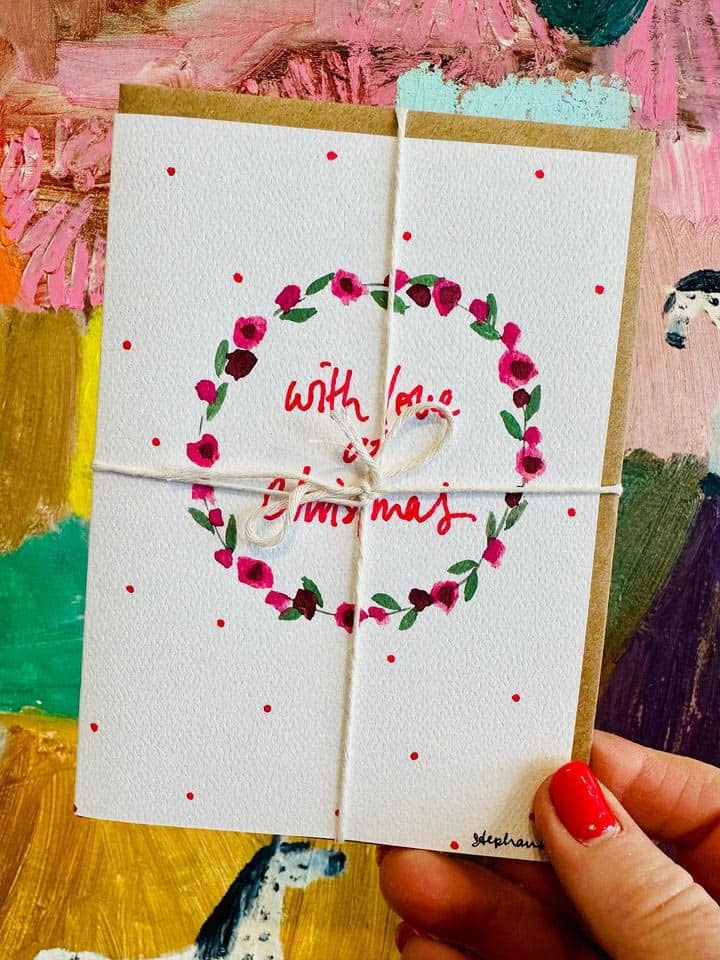 with love
at
Christmas
Stephanie